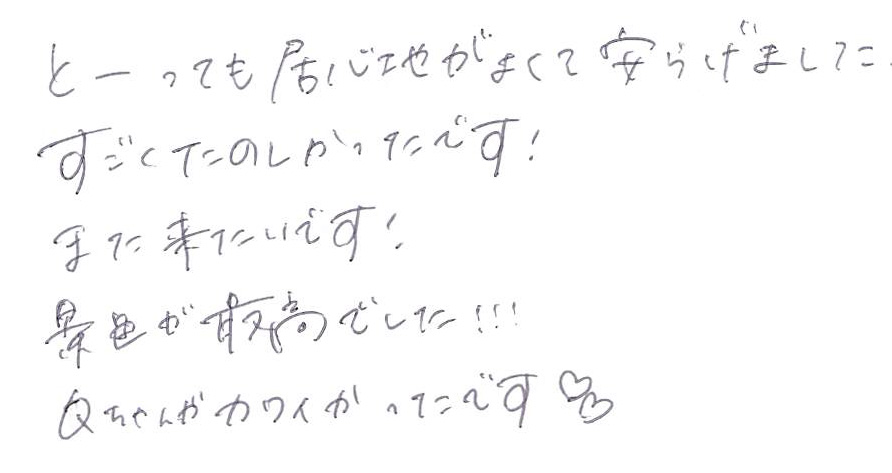 とーっても居心地がよくて安らげました.
すごくたのしかったです!
また来たいです!
景色が最高でした!!!
Qちゃんがカワイかったです♡♡